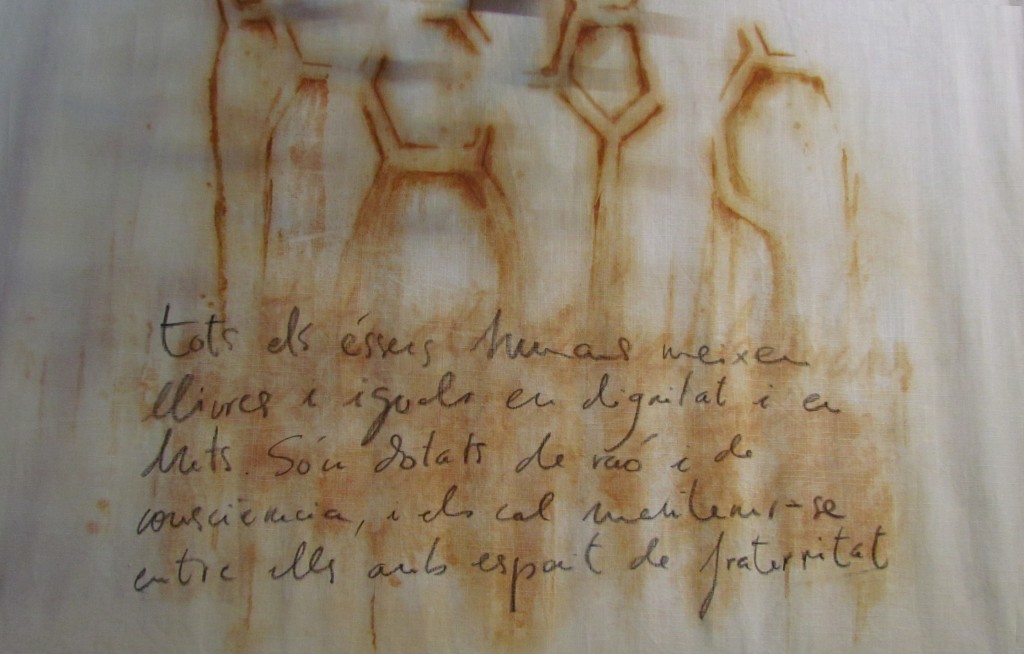 tots els éssers humans neixen
lliures i iguals en dignitat i en
drets. Són dotats de raó i de
consciència, i els cal mantenir-se
entre ells amb esperit de fraternitat